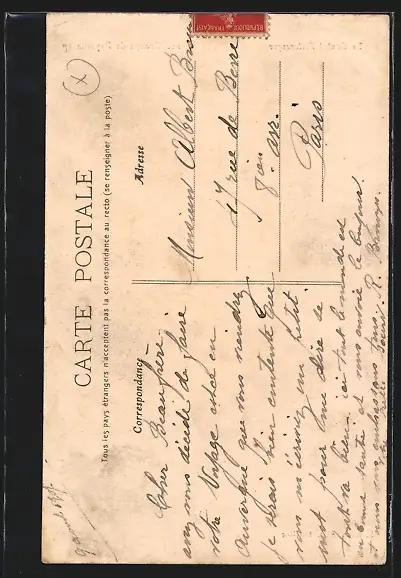 CARTE POSTALE
Tous les pays étrangers n'acceptent pas la correspondance au recto (se renseigner à la poste)
Correspondance
Adresse
RÉPUBLIQUE FRANÇAISE
Monsieur Albert
17 rue de Berri
8ieme arr.
Paris
Cher Beaufrère
avez vous décidé de faire
votre voyage est ce en
Auvergne que vous viendrez
je serais bien contente que
vous m'écriviez un petit
mot pour me dire si
tout va bien, ici tout le monde est
en bonne santé et vous envoie le bonjour.
et nous vous embrassons tous